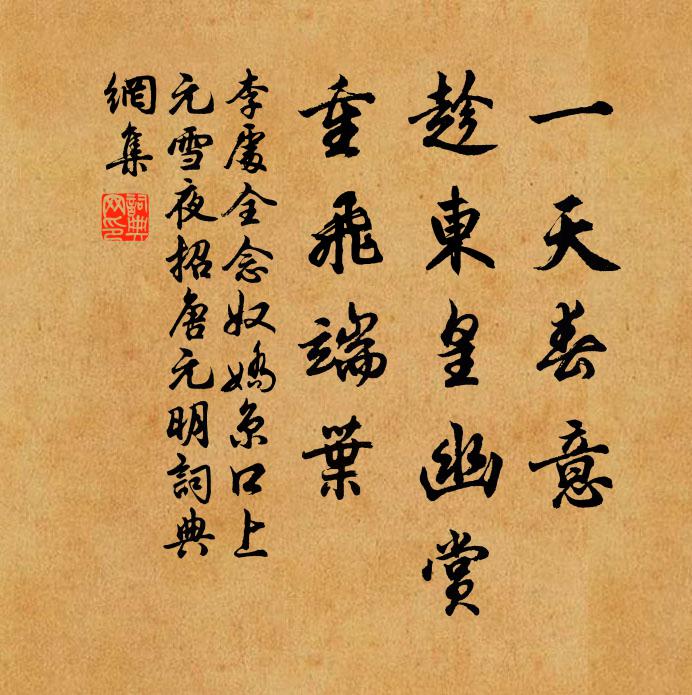 一天春意
趁東皇幽賞
重飛端葉
李處全念奴嬌京口上
元雪夜招唐元明詞典
網集
詞典網印